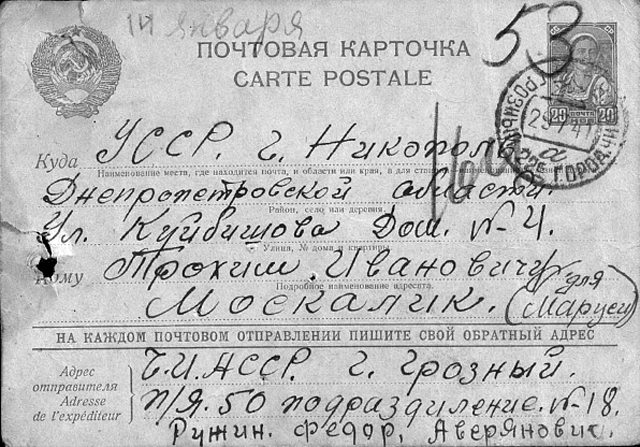 14 января
53
ПОЧТОВАЯ КАРТОЧКА
CARTE POSTALE
20 ПОЧТА 20
29 1 41
Куда УССР. г. Никополь
Наименование места, где находится почта, и области или края, а для станции
Днепропетровской области
Район, село или деревня
Ул. Куйбишова Дом. №4.
Улица, № дома и квартиры
Кому Трохим Ивановичу
Подробное наименование адресата
Москалик. (для Маруси)
НА КАЖДОМ ПОЧТОВОМ ОТПРАВЛЕНИИ ПИШИТЕ СВОЙ ОБРАТНЫЙ АДРЕС
Адрес отправителя
Adresse de l'expéditeur
Ч.И.АССР. г. Грозный.
П/Я.50 подраздиление.№18.
Ружин. Федор. Аверянович.